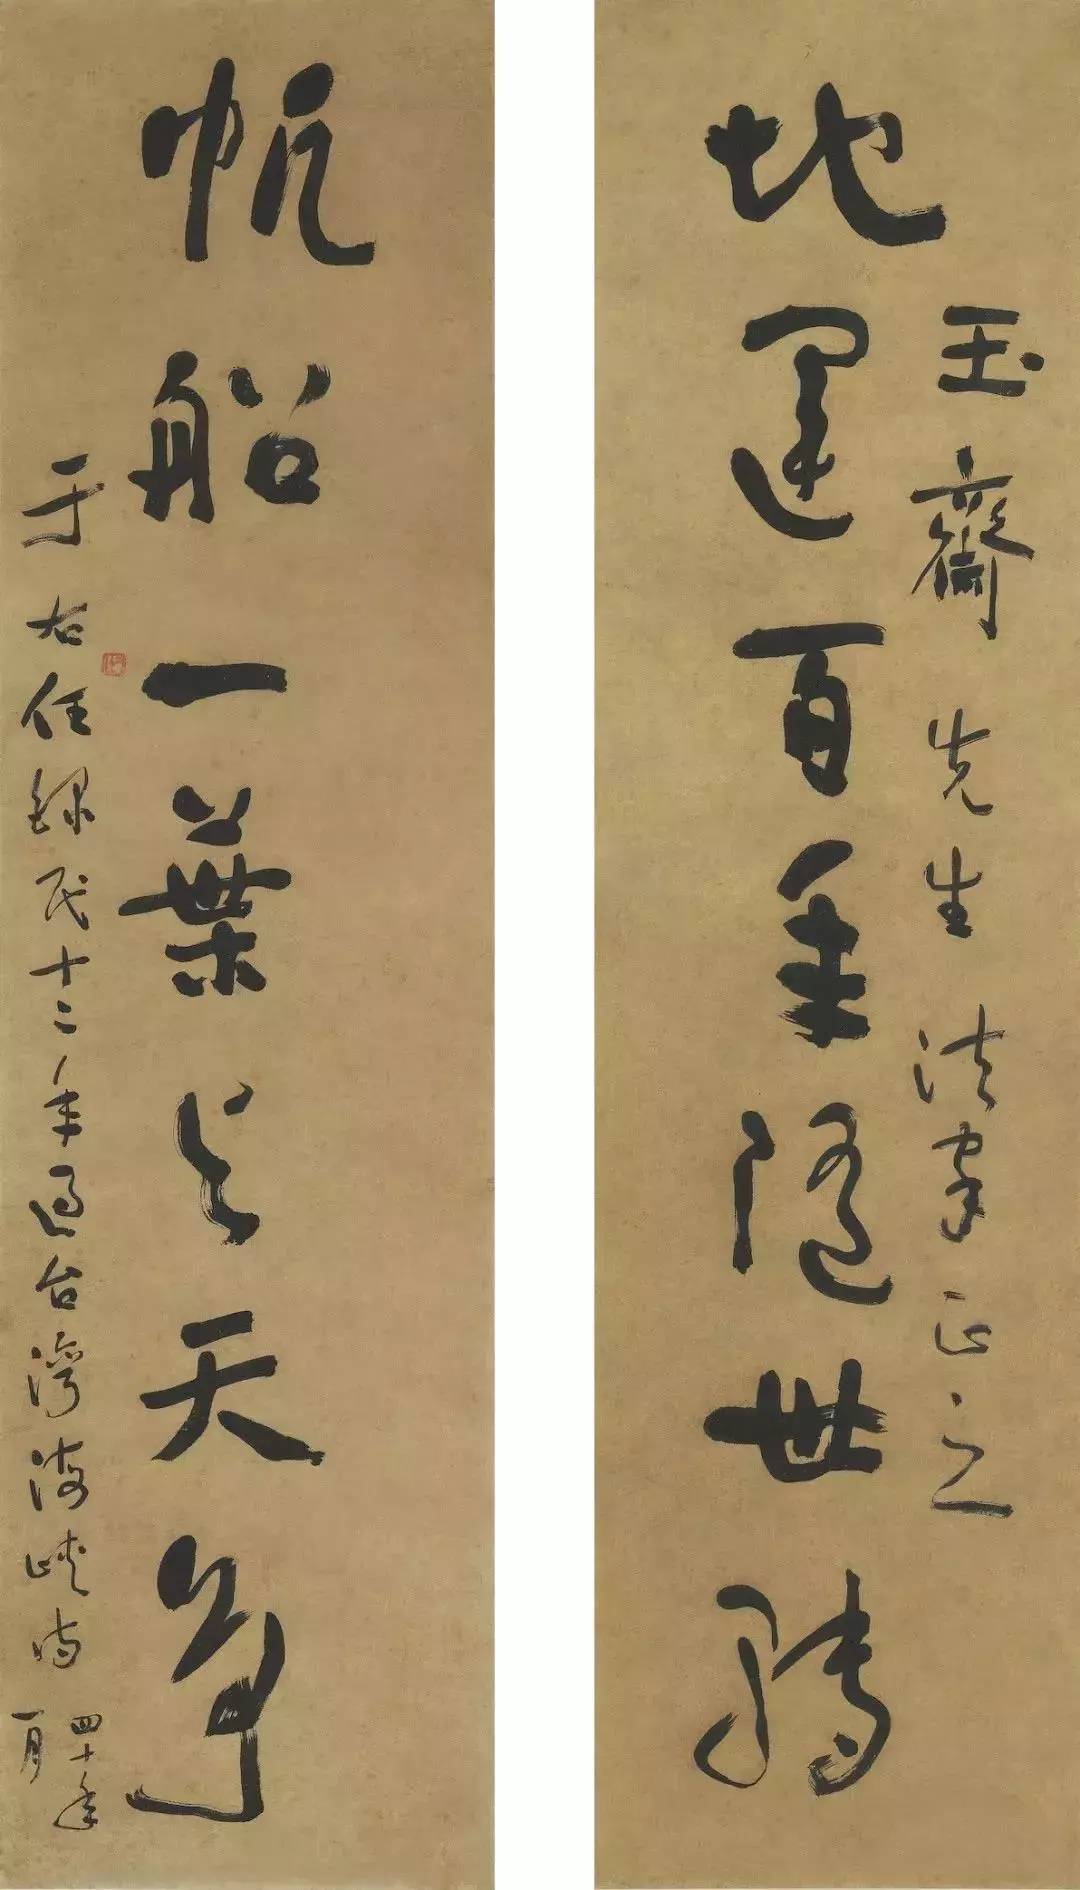 玉齋先生法家正之
地運百年隨世轉
帆船一葉与天爭
于右任錄民十二年過台灣海峽時
四十年
一月